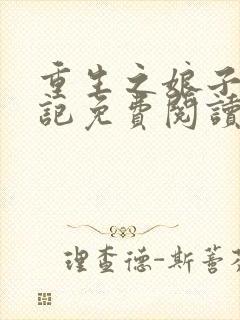 重生之娘子
記免費閱讀
理查德-斯蓄芬